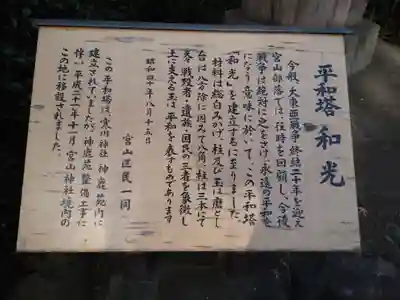 平和塔 和光
今般、大東亜戦争終結二十年を迎え
宮山部落では、往時を回顧し、今後
戦争は絶対に之をさけ、永遠の平和を
になう意味に於いて、この平和塔
「和光」を建立するに至りました。
材料は総白みかげ、柱及び玉は磨とし
台は八方除に因みて八角、柱は三本にて
夫々戦歿者・遺族・国民の三者を象徴し
上に支える玉は、平和を表すものであります
昭和四十年八月十五日
宮山区民一同
この平和塔は、寒川神社神鹿苑内に
建立されていましたが、神鹿苑整備工事に
伴い、平成二十一年十一月宮山神社境内の
この地に移設されました。